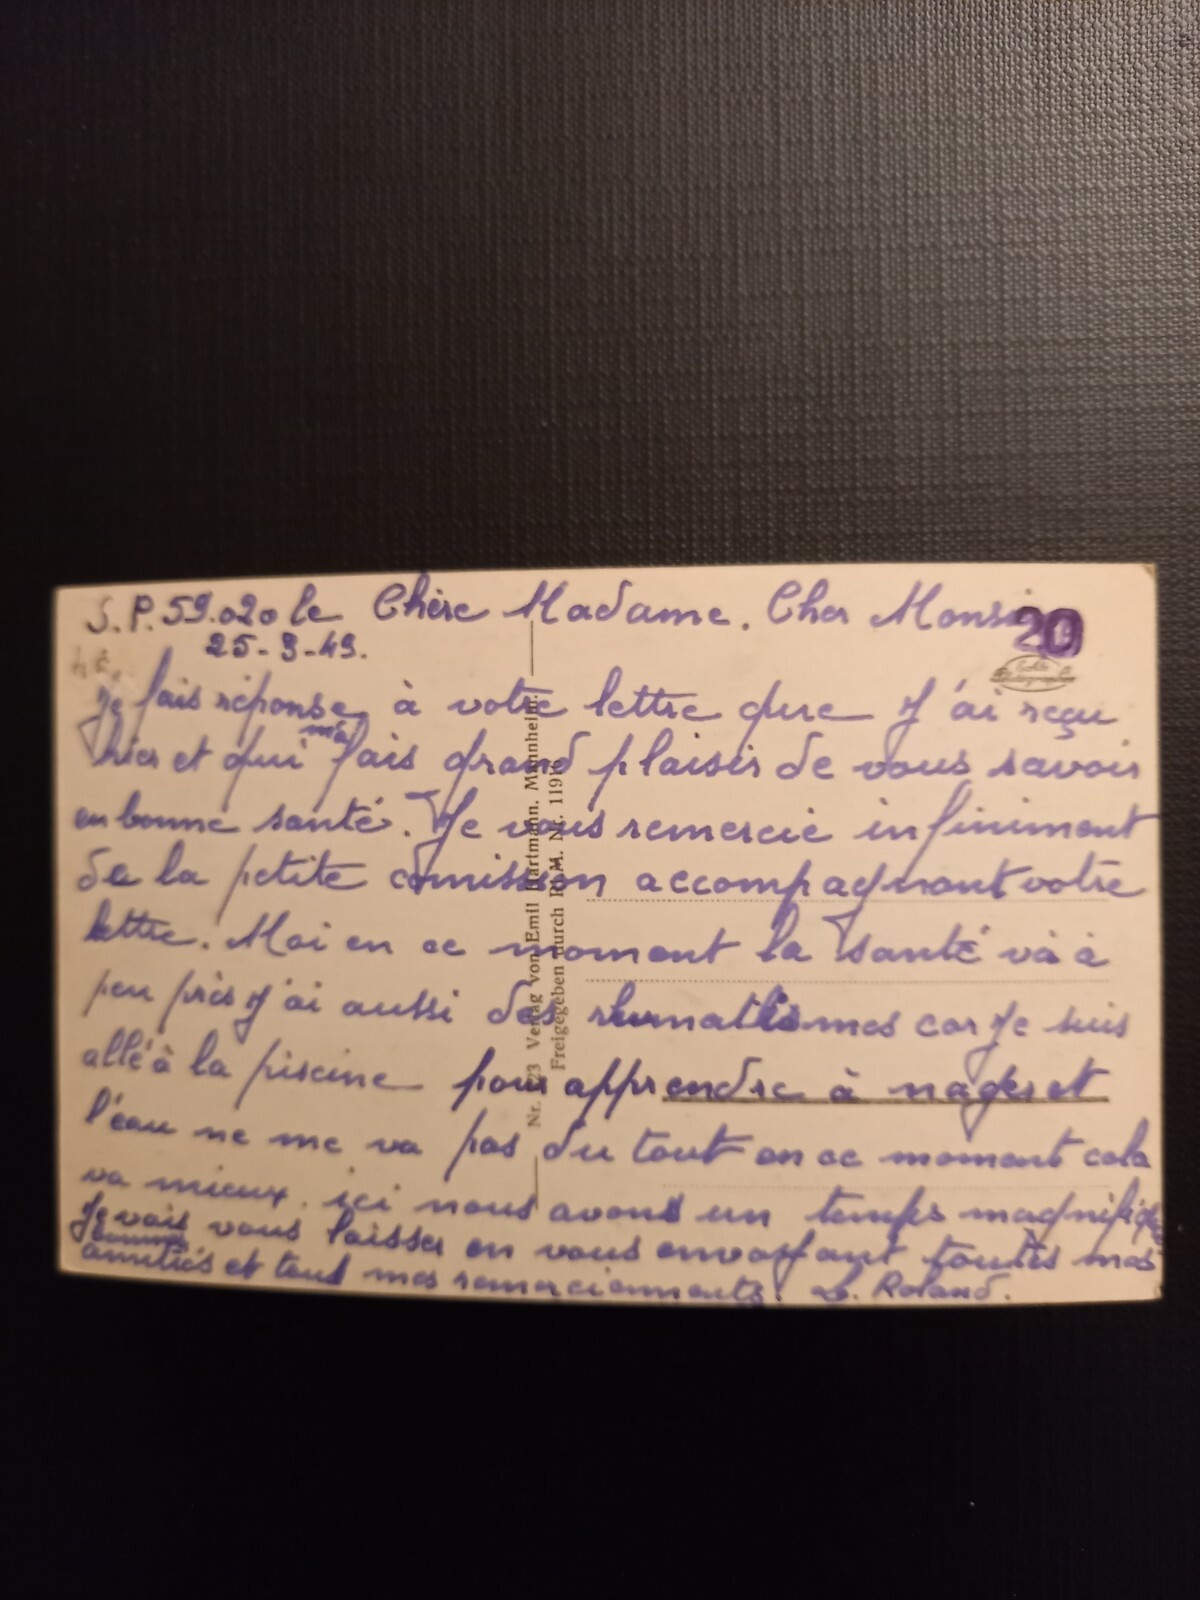 S.P. 59.020 le Chère Madame. Cher Monsi
25-3-49.
20
Je fais réponse à votre lettre que j'ai reçu
m'a
hier et qui fais grand plaisir de vous savoir
en bonne santé. Je vous remercie infiniment
de la petite comission accompagnant votre
lettre. Moi en ce moment la santé và à
peu près j'ai aussi des rhumatismes car je suis
allé à la piscine pour apprendre à nager et
l'eau ne me va pas du tout en ce moment cela
va mieux. ici nous avons un temps magnifique
Je vais vous laisser en vous envoyant toutes mes
amitiés et tous mes remerciements. L. Roland.
Nr. 123 Verlag von Emil Hartmann. Mannheim.
Freigegeben durch RLM. Nr. 11916